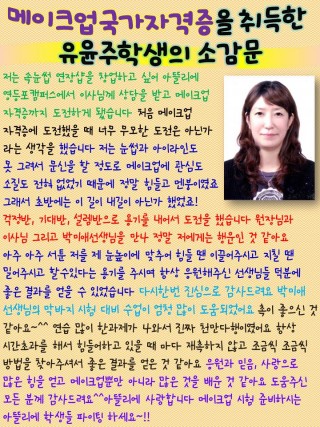 메이크업국가자격증을 취득한
유윤주학생의 소감문
저는 속눈썹 연장샵을 창업하고 싶어 아뜰리에
영등포캠퍼스에서 이사님께 상담을 받고 메이크업
자격증까지 도전하게 됐습니다 처음 메이크업
자격증에 도전했을 때 너무 무모한 도전은 아닌가
라는 생각을 했습니다 저는 눈썹과 아이라인도
못 그려서 문신을 할 정도로 메이크업에 관심도
소질도 전혀 없었기 때문에 정말 힘들고 멘붕이였죠
그래서 초반에는 이 길이 내길이 아닌가 했었죠!
걱정반, 기대반, 설렘반으로 용기를 내어서 도전을 했습니다 원장님과
이사님 그리고 박미애선생님을 만나 정말 저에게는 행운인 것 같아요
아주 아주 서툰 저를 제 눈높이에 맞추어 힘들 땐 이끌어주시고 지칠 땐
밀어주시고 할수있다는 용기를 주시며 항상 응원해주신 선생님들 덕분에
좋은 결과를 얻을 수 있었습니다 다시한번 진심으로 감사드려요 박미애
선생님의 막바지 시험 대비 수업이 엄청 많이 도움되었어요 촉이 좋으신 것
같아요~^^ 연습 많이 한과제가 나와서 진짜 천만다행이였어요 항상
시간초과를 해서 힘들어하고 있을 때 마다 재촉하지 않고 조금씩 조금씩
방법을 찾아주셔서 좋은 결과를 얻은 것 같아요 응원과 믿음, 사랑으로
많은 힘을 얻고 메이크업뿐만 아니라 많은 것을 배운 것 같아요 도움주신
모든 분께 감사드려요^^아뜰리에 사랑합니다 메이크업 시험 준비하시는
아뜰리에 학생들 파이팅 하세요~!!